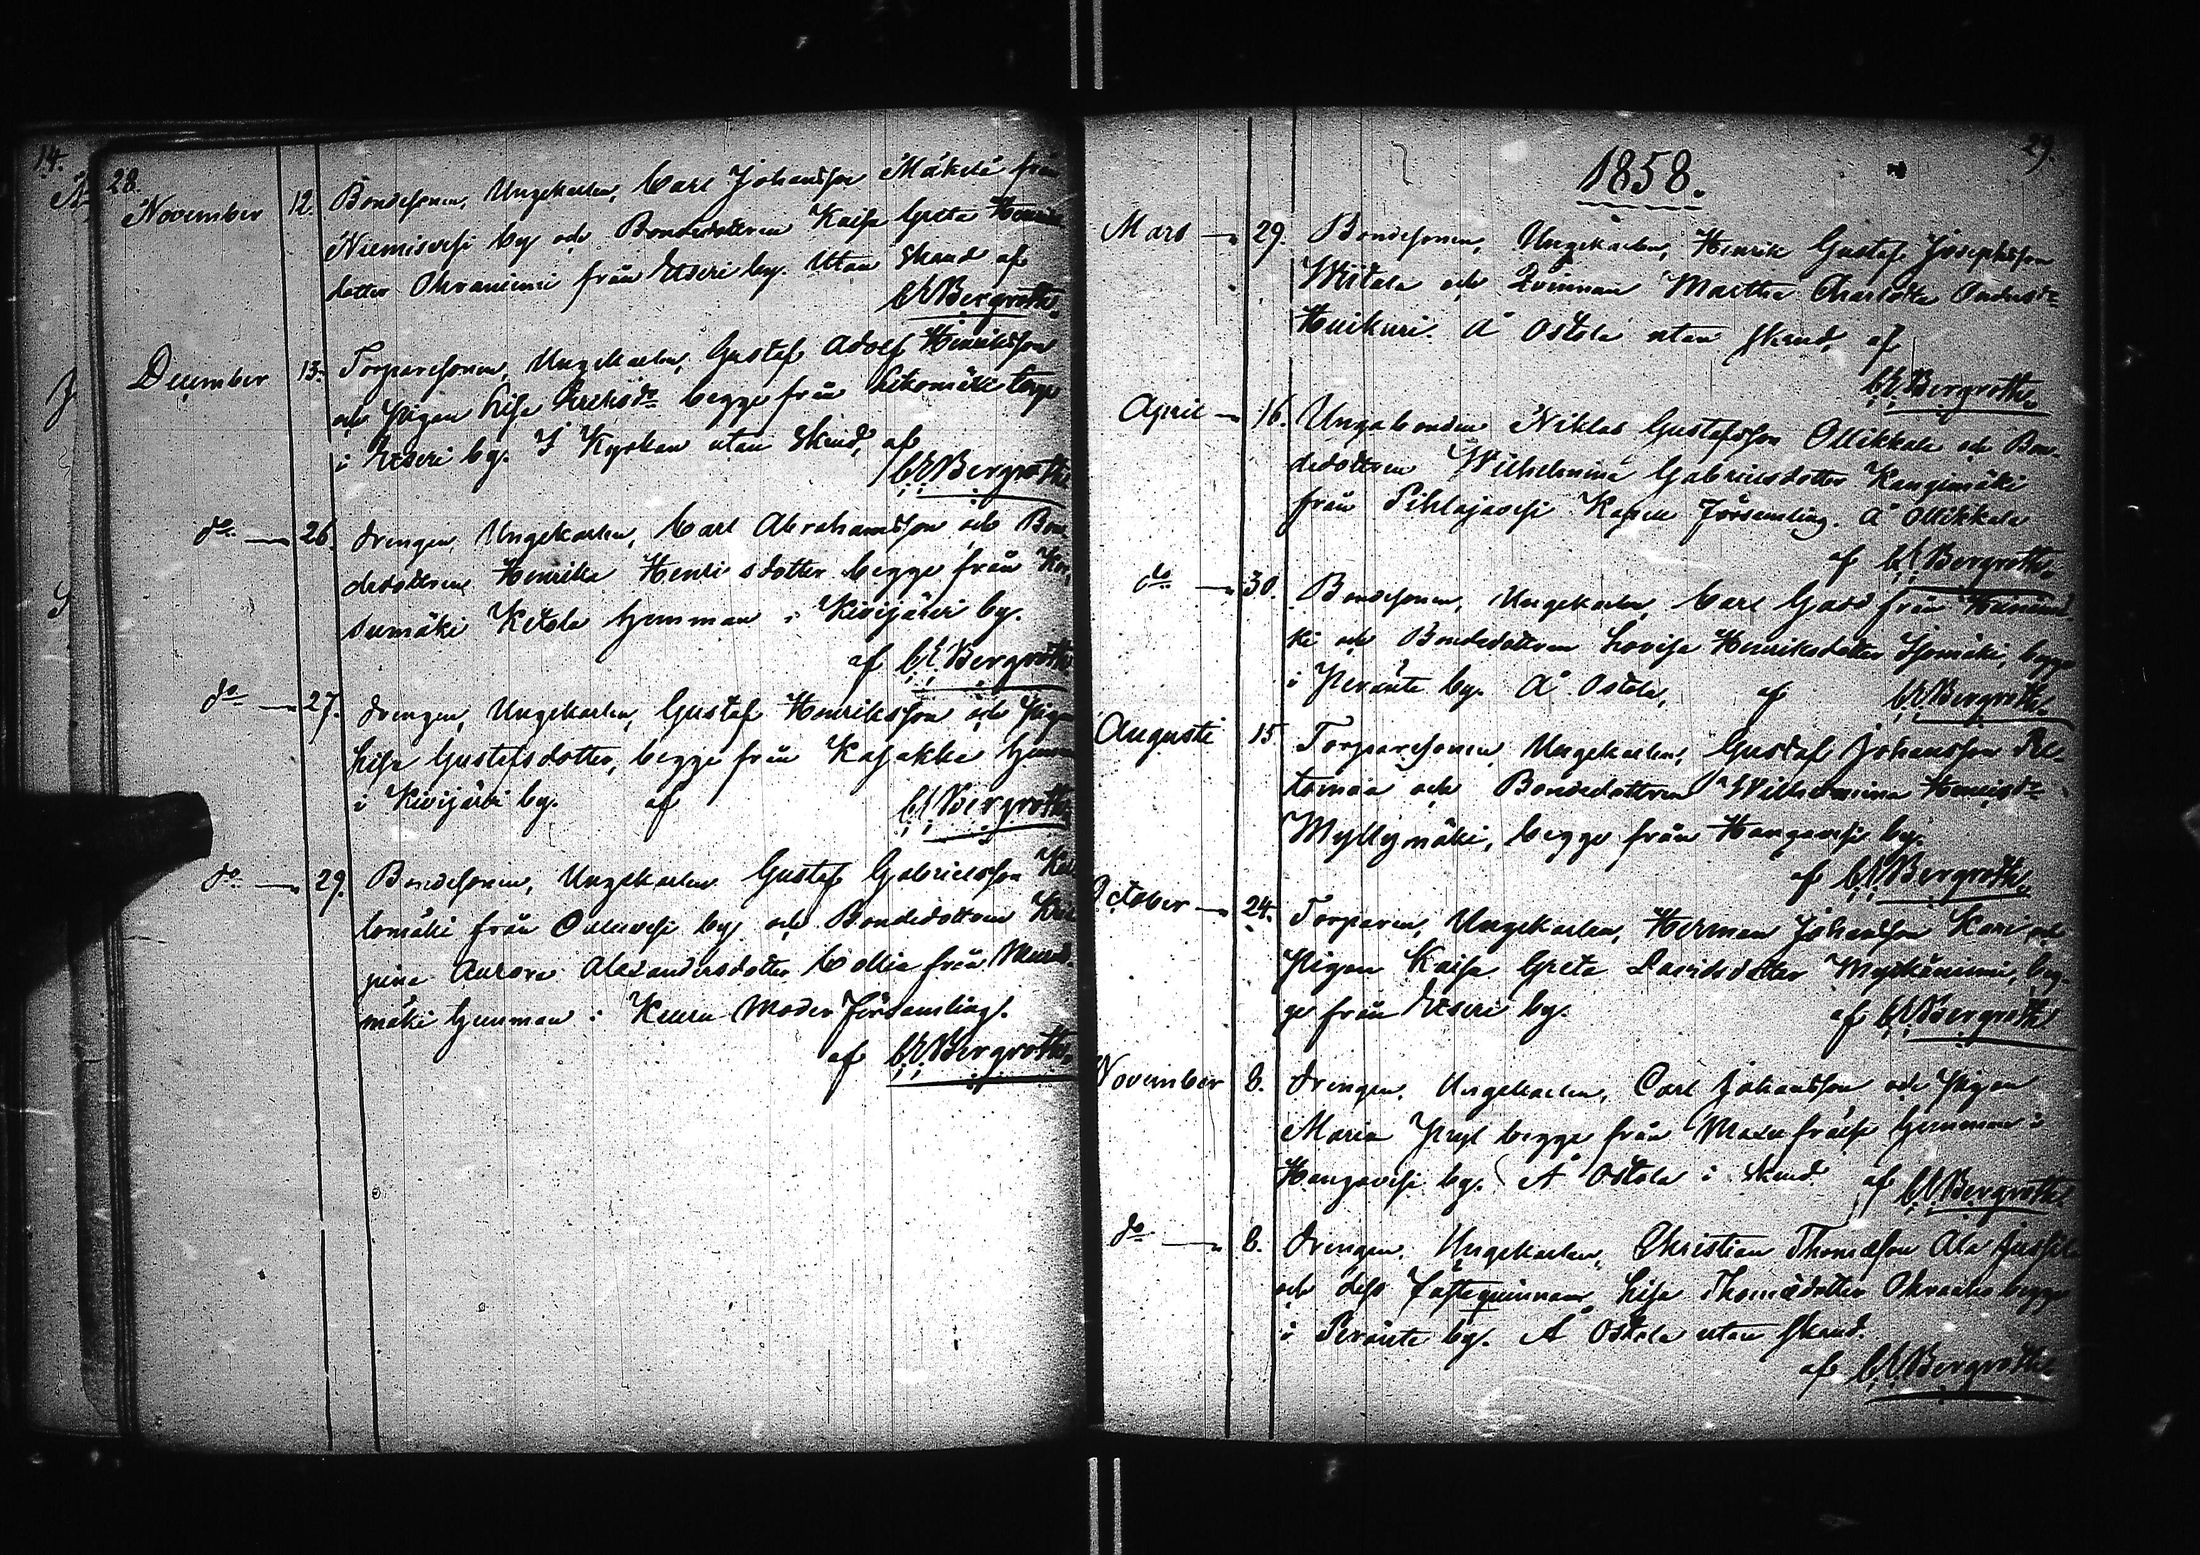 14.
28.
November 12. Bondesonen, Ungekarlen, Carl Johansson Mäkelä från
Niemisvesi by och Bondedottren Kaisa Greta Henriks
dotter Ohraniemi från Etseri by. Utan Skand af
C.E. Bergroth.
December 13. Torparesonen, Ungekarlen, Gustaf Adolf Henriksson
och Pigan Lisa Eriksdr begge från torp
i Etseri by. I Kyrkan utan Skand, af
C.E. Bergroth.
do 26. Drengen, Ungekarlen, Carl Abrahamsson och Bon-
dedottren Henrika Henriksdotter begge från
sumäki Ketola hemman i Kivijärvi by.
af C.E. Bergroth.
do 27. Drengen, Ungekarlen, Gustaf Henriksson och Pigan
Lisa Gustafsdotter, begge från Kasakka hemman
i Kivijärvi by. af C.E. Bergroth.
do 29. Bondesonen, Ungekarlen Gustaf Gabrielsson
lomäki från by och Bondedottren
Aurora Alexandersdotter Collin från
mäki hemman i Keuru Moder Församling.
af C.E. Bergroth.
29.
1858.
Mars 29. Bondesonen, Ungekarlen, Henrik Gustaf Josephsson
Wiitala och Qvinnan Martha Charlotta Andersdr
Huikuri. Å Ostola utan skand, af
C.E. Bergroth.
April 16. Ungabonden Niklas Gustafsson Ollikkala och Bon-
dedottren Wilhelmina Gabrielsdotter Kangimäki
från Pihlajavesi Kapell Församling. Å Ollikkala
af C.E. Bergroth.
do 30. Bondesonen, Ungekarlen, Carl från
ki och Bondedottren Lovisa Henriksdotter Isomäki, begge
i Peränte by. Å Ostola, af C.E. Bergroth.
Augusti 15 Torparesonen, Ungekarlen, Gustaf Johansson
och Bondedottren Wilhelmina Henriksdr
Myllymäki, begge från Hangavesi by.
af C.E. Bergroth.
October 24. Torparen, Ungekarlen, Herman Johansson Kari och
Pigan Kaisa Greta Davidsdotter Myökäniemi, beg-
ge från Etseri by. af C.E. Bergroth
November 8. Drengen, Ungekarlen, Carl Johansson och Pigan
Maria begge från hemman i
Hangavesi by. Å Ostola i skand af C.E. Bergroth.
do 8. Drengen, Ungekarlen, Christian Thomasson Ala
och dess fästeqvinnan Lisa Thomasdotter begge
i Peränte by. Å Ostola utan skand.
af C.E. Bergroth